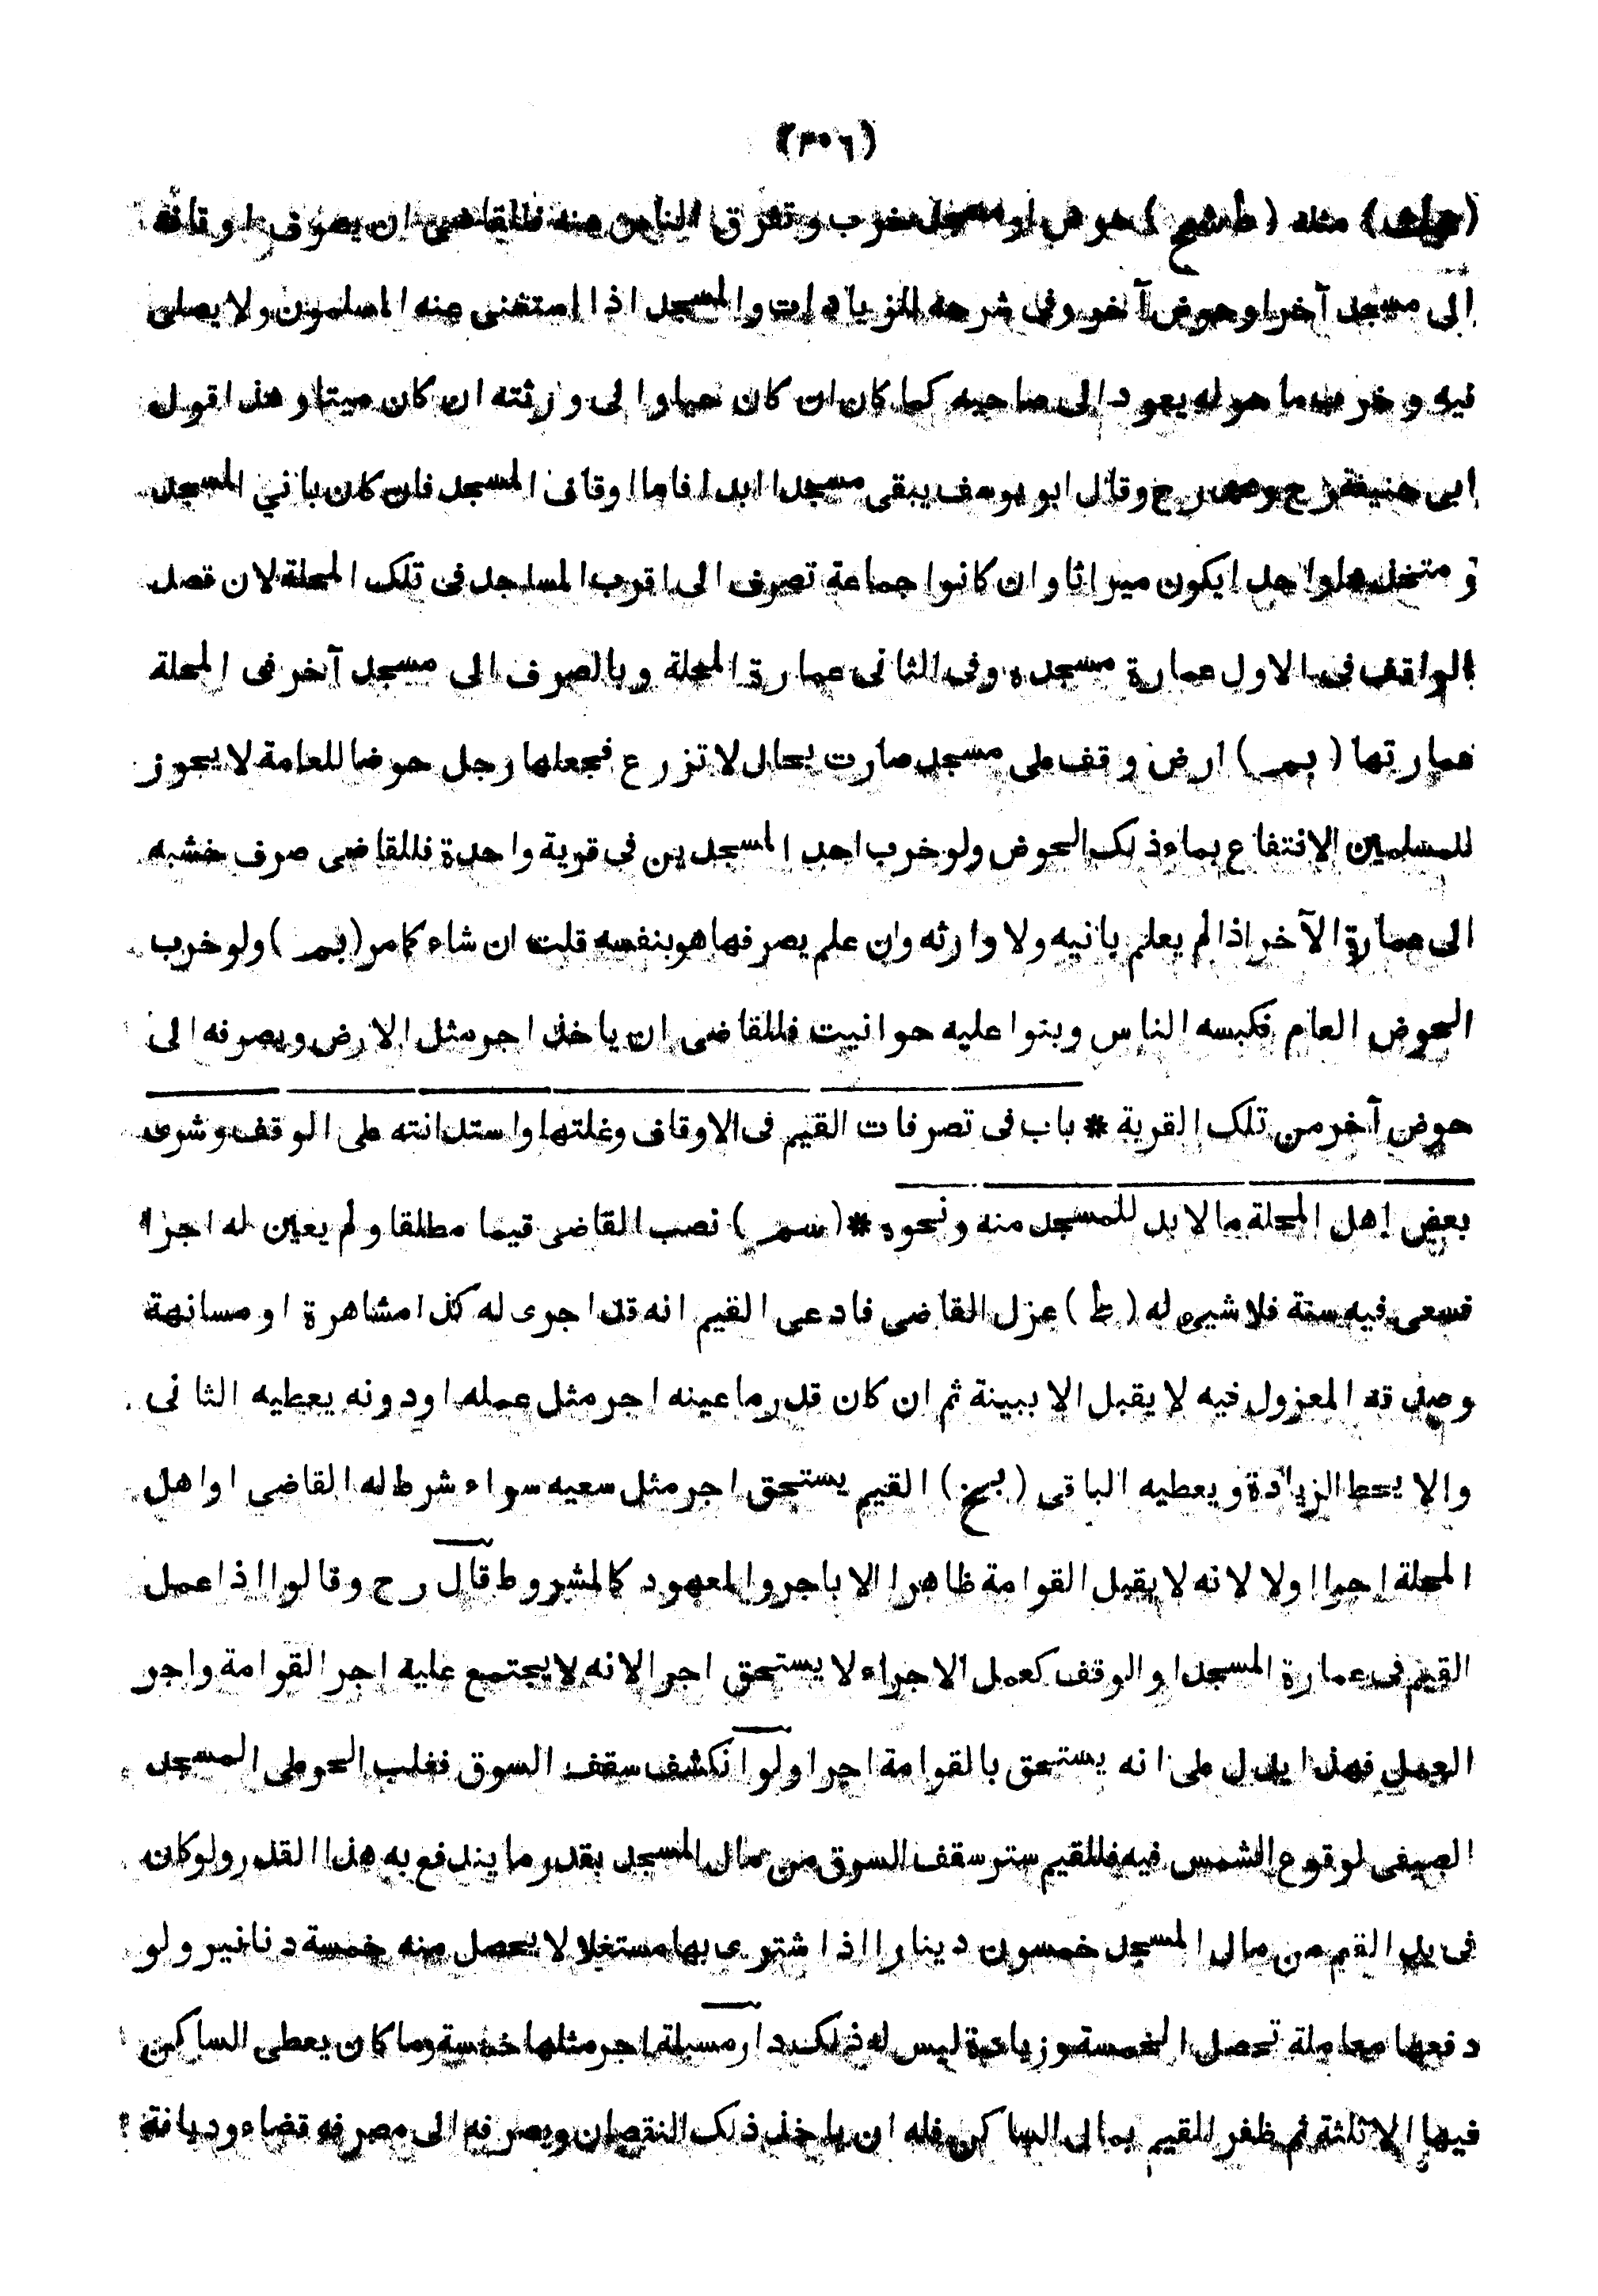 (٣٠٦)
مثله (طشح) حوض او مسجد خرب وتفرق الناس عنه فللقاضى ان يصرف اوقافه
الى مسجد آخر او حوض آخر وفى شرحه للزيادات والمسجد اذا استغنى عنه المسلمون ولا يصلى
فيه وخرب ما حوله يعود الى صاحبه كما كان ان كان حيا والى ورثته ان كان ميتا وهذا قول
ابى حنيفة رح ومحمد رح وقال ابو يوسف يبقى مسجدا ابدا فاما اوقاف المسجد فان كان بانى المسجد
و متخذها واحدا يكون ميراثا وان كانوا جماعة تصرف الى اقرب المساجد فى تلك المحلة لان قصد
الواقف فى الاول عمارة مسجده وفى الثانى عمارة المحلة وبالصرف الى مسجد آخر فى المحلة
عمارتها (بم) ارض وقف على مسجد صارت بحال لا تزرع فجعلها رجل حوضا للعامة لا يجوز
للمسلمين الانتفاع بماء ذلك الحوض ولو خرب احد المسجدين فى قرية واحدة فللقاضى صرف خشبه
الى عمارة الآخر اذا لم يعلم بانيه ولا وارثه وان علم يصرفها هو بنفسه قلت ان شاء كما مر (بم) ولو خرب
الحوض العام فكبسه الناس وبنوا عليه حوانيت فللقاضى ان ياخذ اجر مثل الارض ويصرفه الى
حوض آخر من تلك القرية * باب فى تصرفات القيم فى الاوقاف وغلتها واستدانته على الوقف وشرى
بعض اهل المحلة ما لا بد للمسجد منه ونحوه * (سم) نصب القاضى قيما مطلقا ولم يعين له اجرا
فسعى فيه سنة فلا شيء له (ط) عزل القاضى فادعى القيم انه قد اجرى له كذا مشاهرة او مسانهة
وصدقه المعزول فيه لا يقبل الا ببينة ثم ان كان قدر ما عينه اجر مثل عمله او دونه يعطيه الثانى
والا يحط الزيادة ويعطيه الباقى (بخ) القيم يستحق اجر مثل سعيه سواء شرط له القاضى او اهل
المحلة اجرا اولا لانه لا يقبل القوامة ظاهرا الا باجر والمعهود كالمشروط قال رح وقالوا اذا عمل
القيم فى عمارة المسجد او الوقف كعمل الاجراء لا يستحق اجرا لانه لا يجتمع عليه اجر القوامة واجر
العمل فهذا يدل على انه يستحق بالقوامة اجرا ولو انكشف سقف السوق فغلب الحر على المسجد
الصيفى لوقوع الشمس فيه فللقيم ستر سقف السوق من مال المسجد بقدر ما يندفع به هذا القدر ولو كان
فى يد القيم من مال المسجد خمسون دينارا اذا اشترى بها مستغلا لا يحصل منه خمسة دنانير ولو
دفعها معاملة تحصل الخمسة وزيادة ليس له ذلك دار مسبلة اجر مثلها خمسة وما كان يعطى الساكن
فيها الا ثلثة ثم ظفر القيم بمال الساكن فله ان ياخذ ذلك النقصان ويصرفه الى مصرفه قضاء وديانة